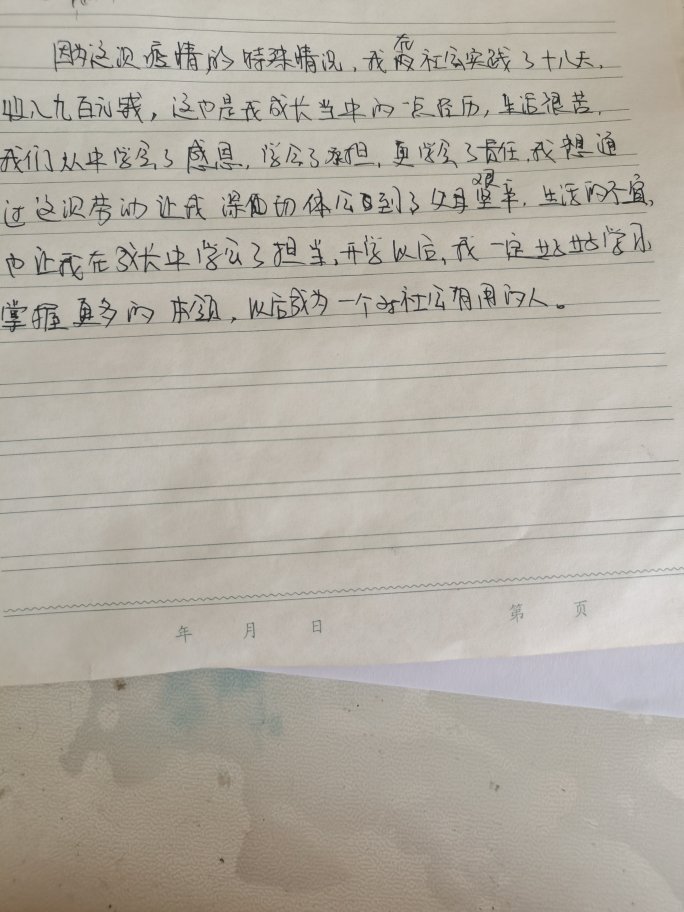 因为这次疫情的特殊情况，我在社会实践了十八天，
收入九百元钱，这也是我成长当中的一点经历，生活很苦，
我们从中学会了感恩，学会了承担，更学会了责任，我想通
过这次劳动让我深切体会到了父母艰辛，生活的不宜，
也让我在成长中学会了担当，开学以后，我一定好好学习
掌握更多的本领，以后成为一个对社会有用的人。
年 月 日 第 页